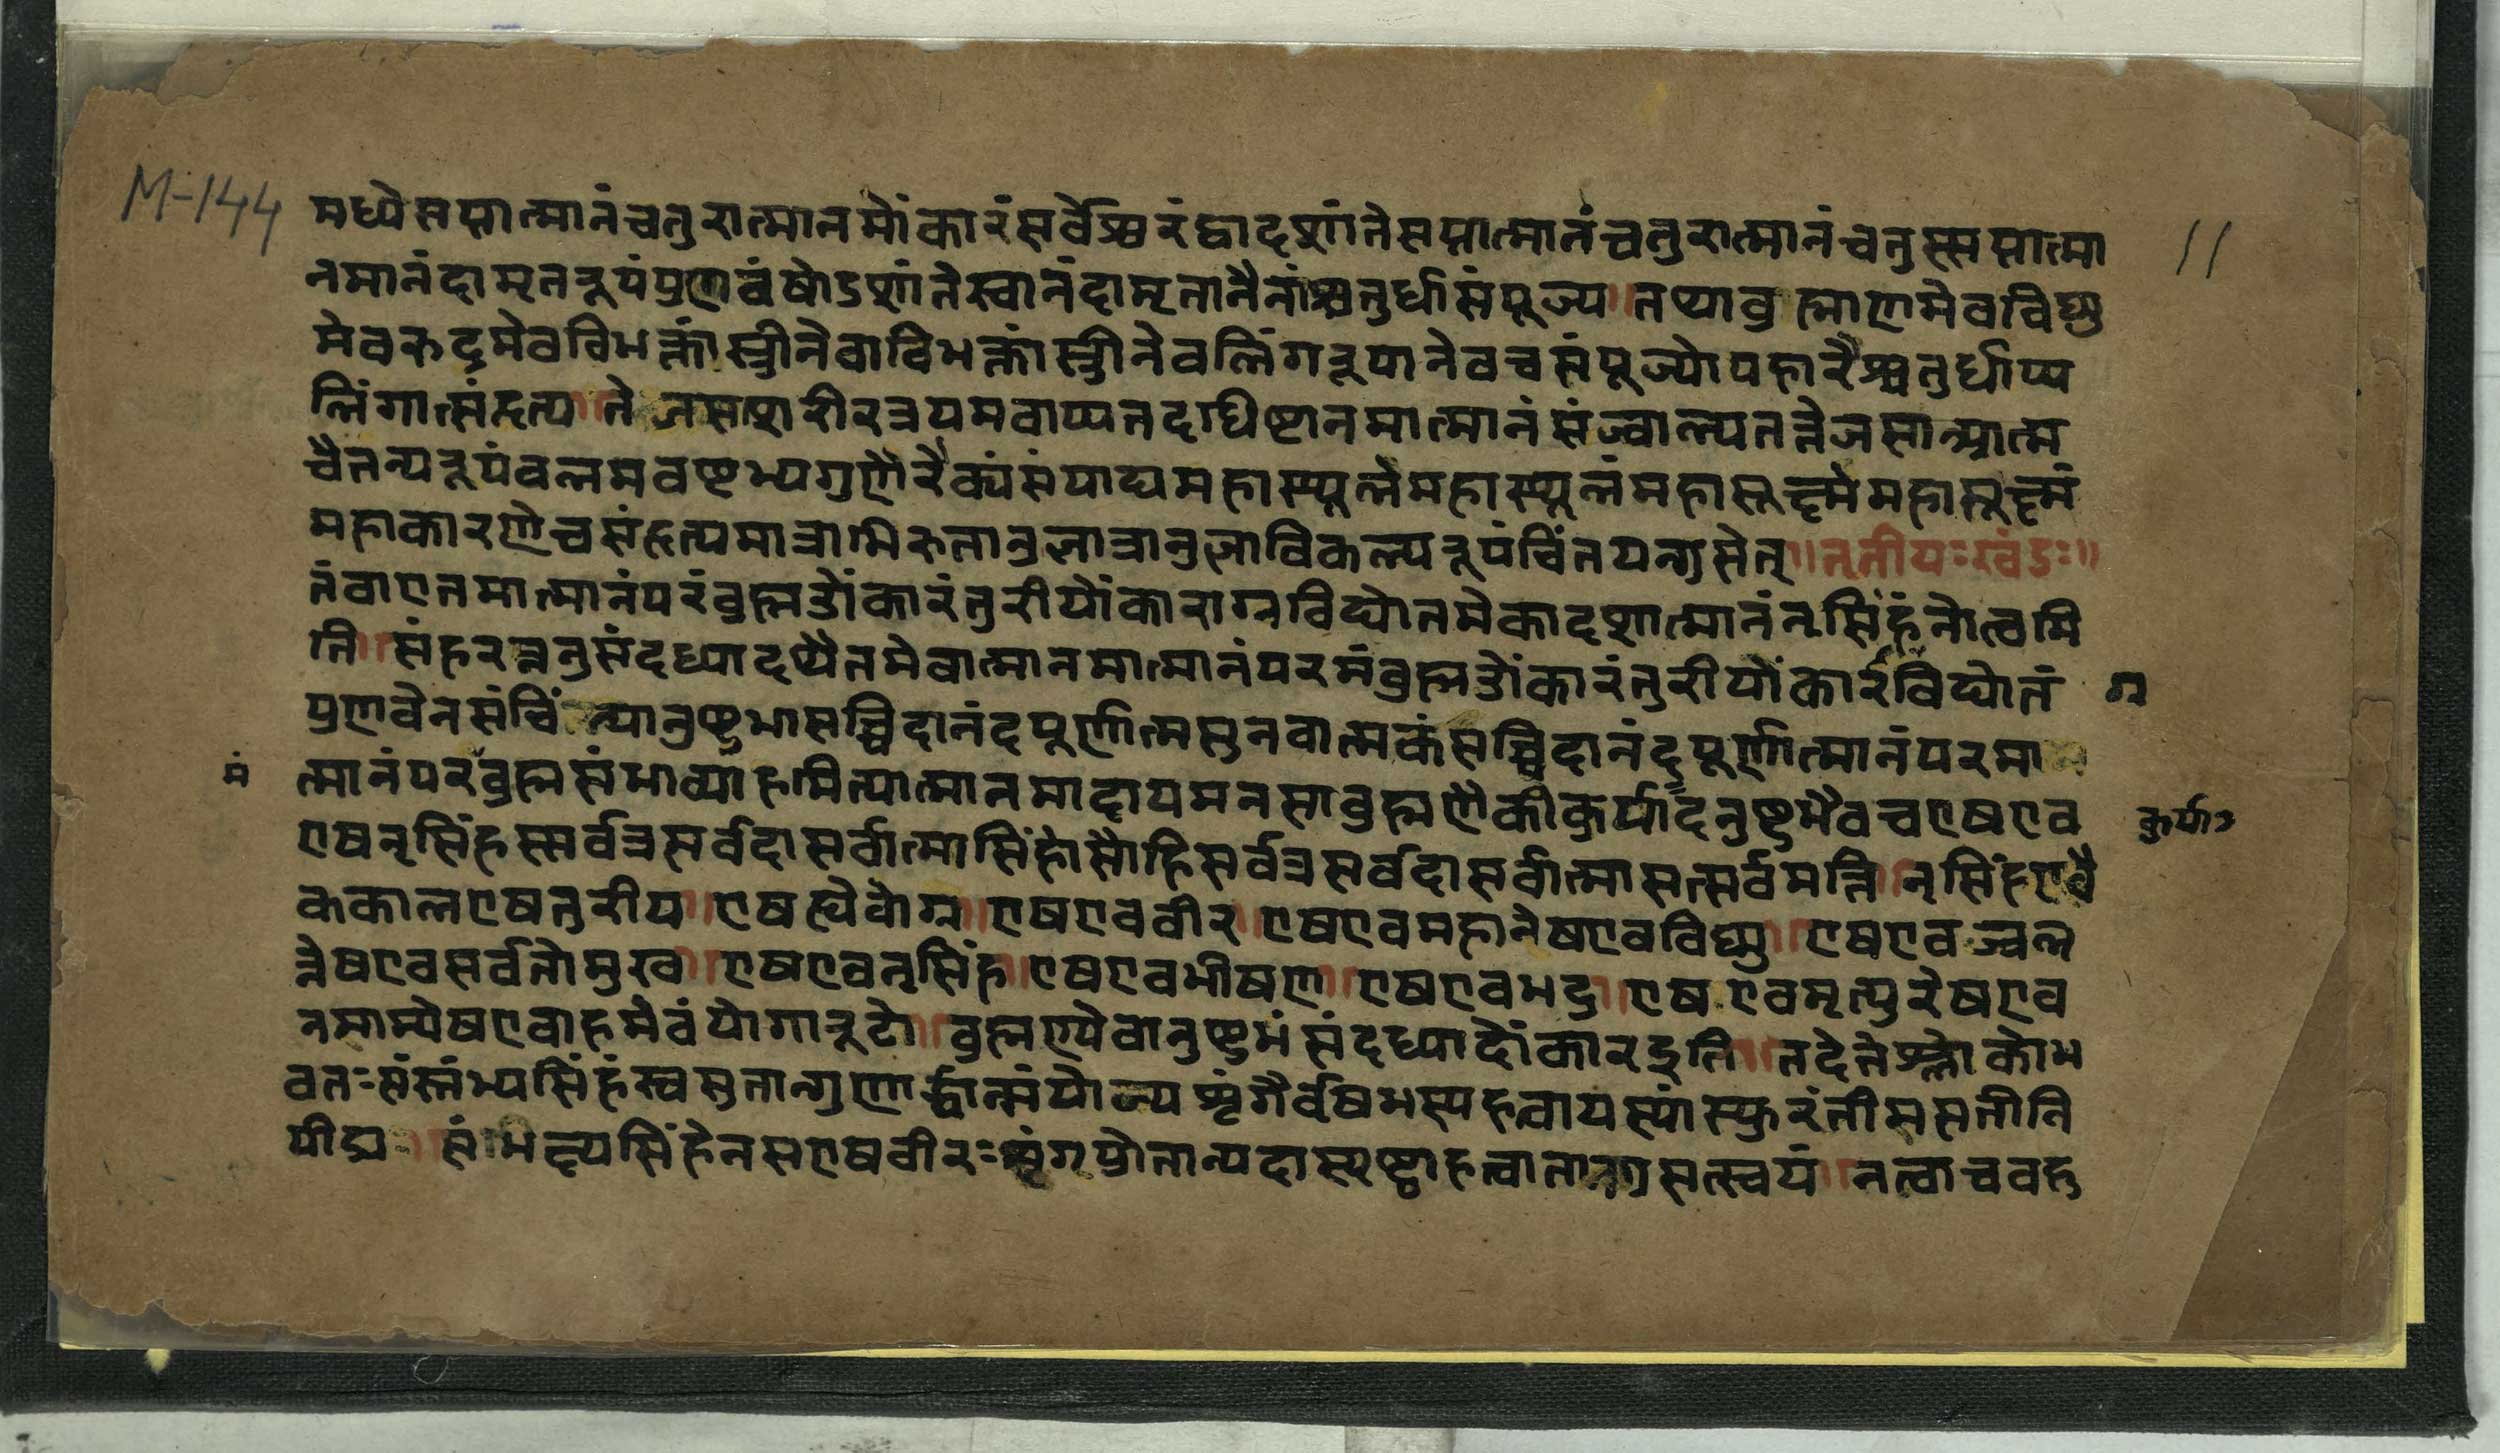 M-144
11
मध्ये सप्तात्मानं चतुरात्मानमोंकारं सर्वेश्वरं द्वादशांते सप्तात्मानं चतुरात्मानं चतुस्सप्तात्मा
नमानंदामृतरूपं प्रणवं षोडशांते स्वानंदामृतानैनांश्चतुर्धा संपूज्य ।। तथा ब्रह्माणमेव विष्णु
मेव रुद्रमेव विभक्तांस्त्रीनेवाविभक्तांस्त्रीनेव लिंगरूपानेव च संपूज्योपहारैश्चतुर्धाप्य
लिंगात्संहृत्य ।। तेजसा शरीरत्रयमवाप्य तदधिष्टानमात्मानं संज्वाल्य तत्तेजसात्मात्म
चैतन्यरूपं बलमवष्टभ्य गुणैरैक्यं संपाद्य महास्थूले महास्थूलं महासूक्ष्मे महासूक्ष्मं
महाकारणे च संहृत्य मात्राभिरुतानुज्ञात्रानुज्ञाविकल्परूपं चिंतयन्ग्रसेत् ।। तृतीयः खंडः ॥
तं वा एतमात्मानं परं ब्रह्म ओंकारं तुरीयोंकाराग्रविद्योतमेकादशात्मानं नृसिंहं नोत्वमि
ति ।। संहरन्ननुसंदध्यादथैतमेवात्मानमात्मानं परमं ब्रह्म ओंकारं तुरीयोंकारविद्योतं
ग्र
प्रणवेन संचिंत्यानुष्टुभा सच्चिदानंदपूर्णात्मसु नवात्मकं सच्चिदानंदपूर्णात्मानं परमा
मं
त्मानं परब्रह्म संभाव्याहमित्यात्मानमादाय मनसा ब्रह्मणैकीकुर्याद्दनुष्टुभैव च एष एव
कुर्या२
एष नृसिंहस्सर्वत्र सर्वदा सर्वात्मा सिंहोसौ हि सर्वत्र सर्वदा सर्वात्मा सत्सर्वमत्ति ।। नृसिंह एवै
ककाल एष तुरीय ।। एष ह्येवोग्र ।। एष एव वीर ।। एष एव महानेष एव विष्णु ।। एष एव ज्वल
न्नेष एव सर्वतोमुख ।। एष एव नृसिंह ।। एष एव भीषण ।। एष एव भद्र ।। एष एव मृत्युरेष एव
नमाम्येष एवाहमेवं योगारूढो ।। ब्रह्मण्येवानुष्टुभं संदध्यादोंकार इति ।। तदेते श्लोको भ
वतः संस्तंभ्य सिंहं स्वसुतान्गुणार्द्धान्संयोज्य शृंगैर्वृषभस्य हत्वा यस्यां स्फुरंतीमसतीं नि
पीड्य ।। संभक्ष्य सिंहेन स एष वीरः शृंगप्रोतान्यदा स्पृष्ट्वा हत्वा तानग्रसत्स्वयं ।। नत्वा च बहु